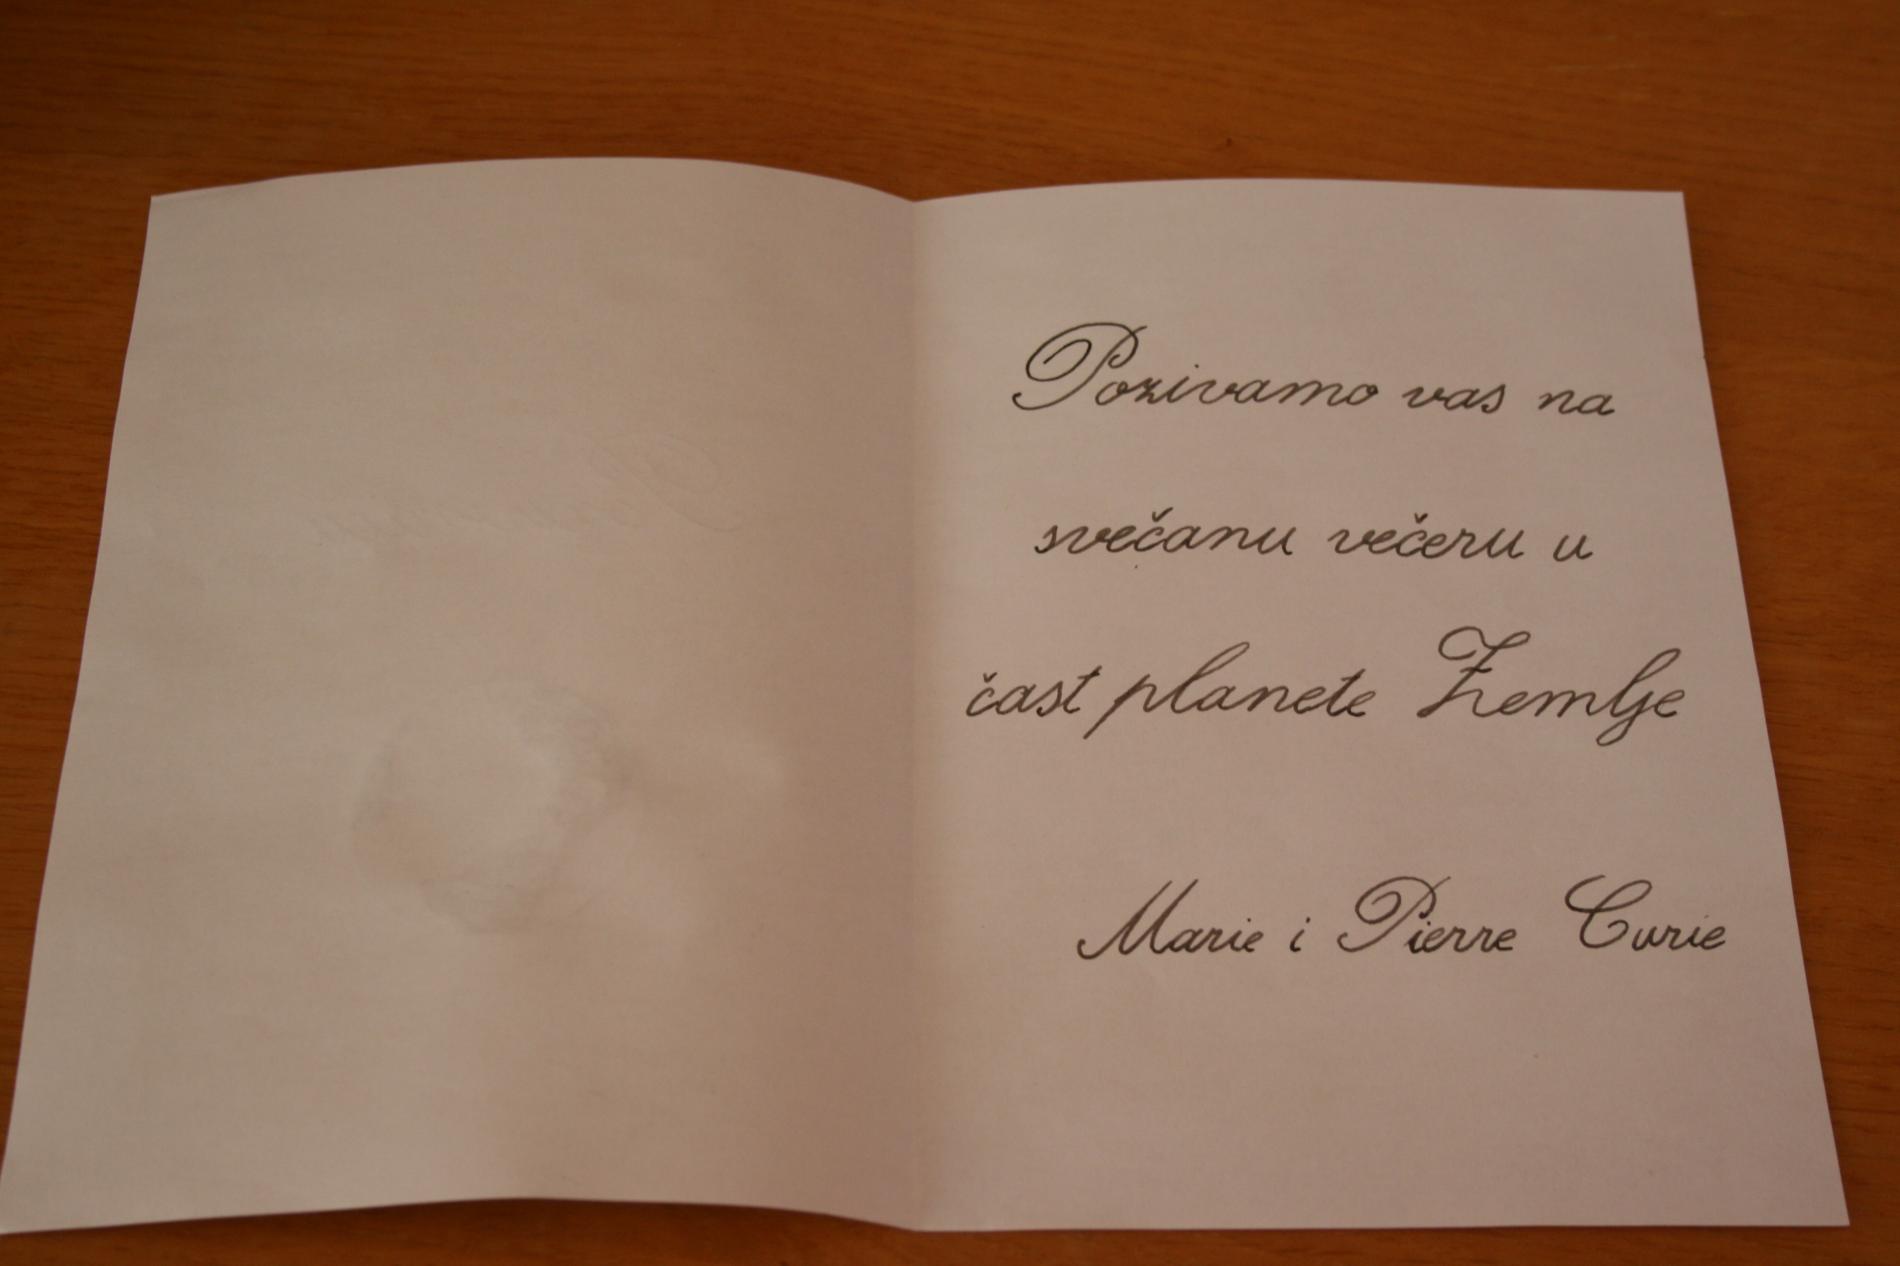 Pozivamo vas na
svečanu večeru u
čast planete Zemlje
Marie i Pierre Curie